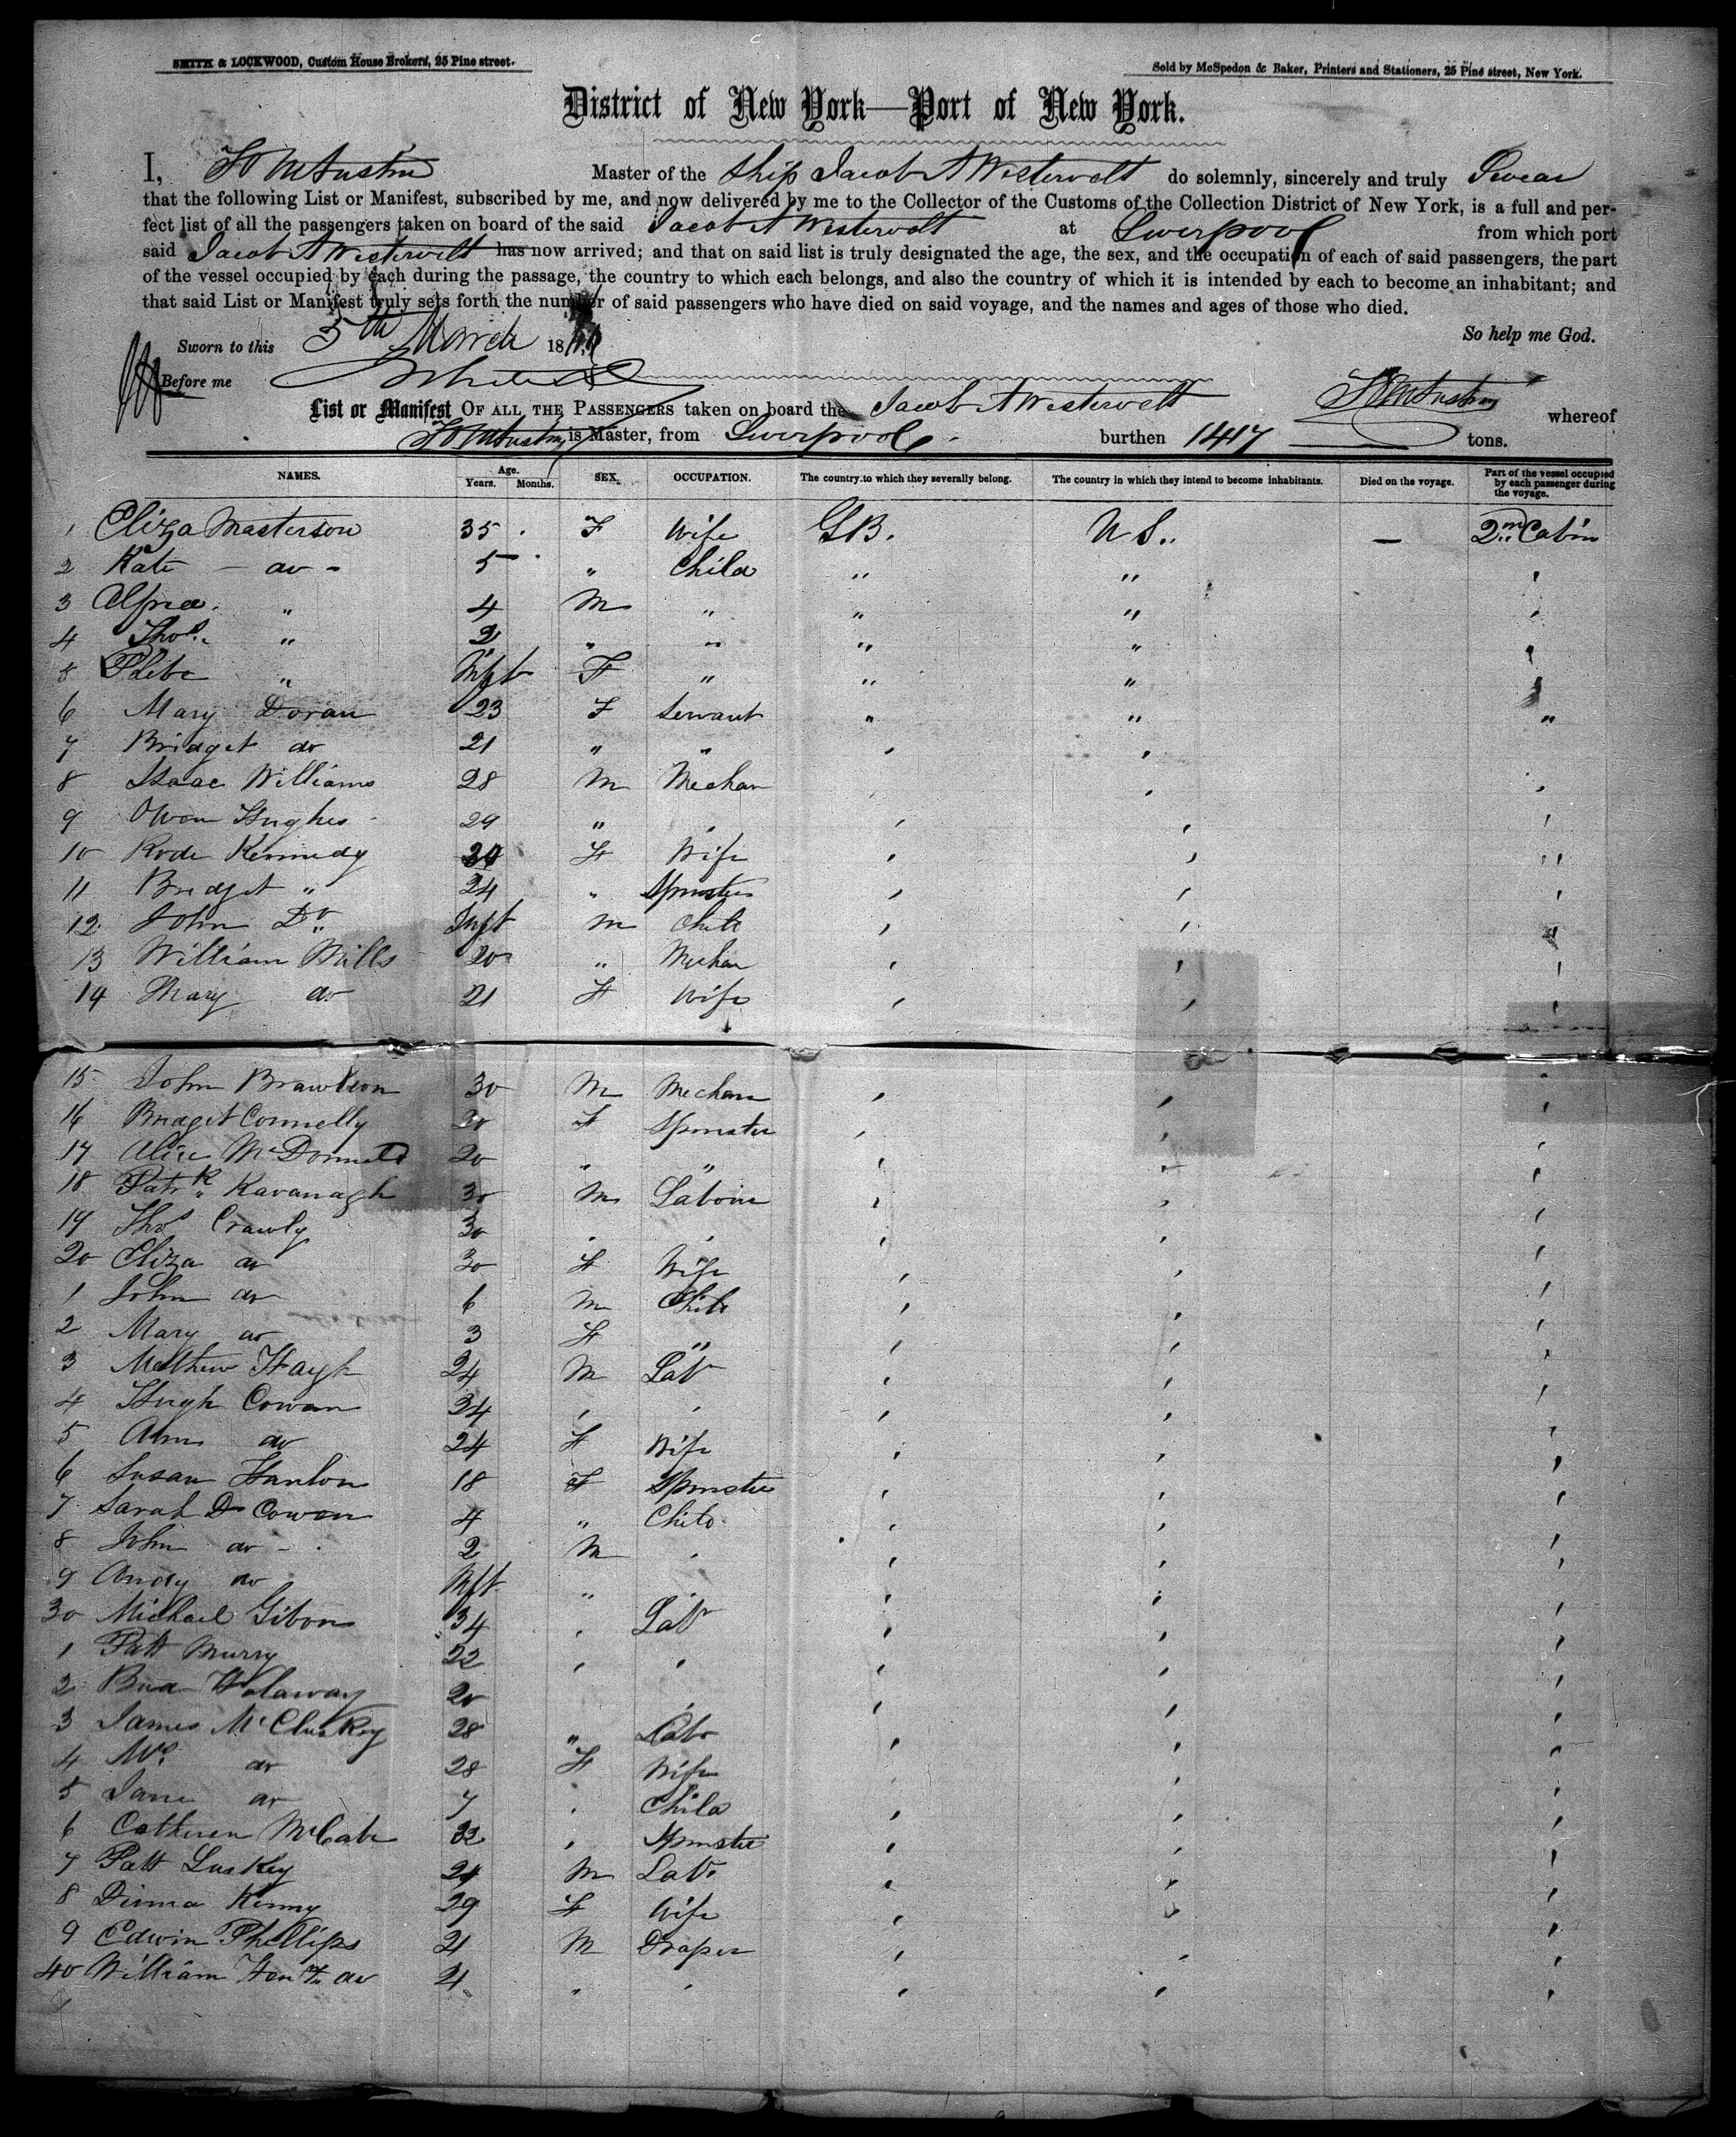 SMITH & LOCKWOOD, Custom House Brokers, 25 Pine street.
Sold by McSpedon & Baker, Printers and Stationers, 25 Pine street, New York.
District of New York—Port of New York.
I, Master of the Ship Jacob A Westervelt do solemnly, sincerely and truly Swear
that the following List or Manifest, subscribed by me, and now delivered by me to the Collector of the Customs of the Collection District of New York, is a full and per-
fect list of all the passengers taken on board of the said Jacob A Westervelt at Liverpool from which port
said Jacob A Westervelt has now arrived; and that on said list is truly designated the age, the sex, and the occupation of each of said passengers, the part
of the vessel occupied by each during the passage, the country to which each belongs, and also the country of which it is intended by each to become an inhabitant; and
that said List or Manifest truly sets forth the number of said passengers who have died on said voyage, and the names and ages of those who died.
So help me God.
Sworn to this 5th March 18
Before me
List or Manifest OF ALL THE PASSENGERS taken on board the Jacob A Westervelt whereof
is Master, from Liverpool burthen 1417 tons.
NAMES. Age. Years. Months. SEX. OCCUPATION. The country to which they severally belong. The country in which they intend to become inhabitants. Died on the voyage. Part of the vessel occupied by each passenger during the voyage.
1 Eliza Masterson 35 F Wife GB. U S. — 2nd Cabin
2 Kate - do - 5 " Child " "
3 Alfred " 4 M " " "
4 Thos. " 2 " " " "
5 Phebe " Inft F " " "
6 Mary Doran 23 F Servant " " "
7 Bridget do 21 " "
8 Isaac Williams 28 M Mechan
9 Owen Hughes 29 "
10 Rode Kennedy F Wife
11 Bridget " 24 " Spinster
12 John Do Inft M Child
13 William Mills 20 " Mechan
14 Mary do 21 F Wife
15 John Brawlson 30 M Mechan
16 Bridget Connelly 20 F Spinster
17 Alice McDonnald 20 " "
18 Patrk Kavanagh 30 M Labour
19 Thos Crawly 30
20 Eliza do 30 F Wife
1 John do 6 M Child
2 Mary do 3 F "
3 Mathew Hayh 24 M Lab
4 Hugh Cowan 34
5 Ann do 24 F Wife
6 Susan Hanlon 18 F Spinster
7 Sarah D Cowan 4 " Child
8 John do - 2 M
9 Andy do Inft "
30 Michael Gibons 34 Lab
1 Patt Murry 22
2 Holaway 20
3 James McCluskey 28 " Lab
4 Mrs do 28 F Wife
5 Jane do 7 Child
6 Catheren McCabe 32 Spinster
7 Patt Luskey 24 M Lab.
8 Dinna Kenny 29 F Wife
9 Edwin Phillips 21 M Draper
40 William do 21